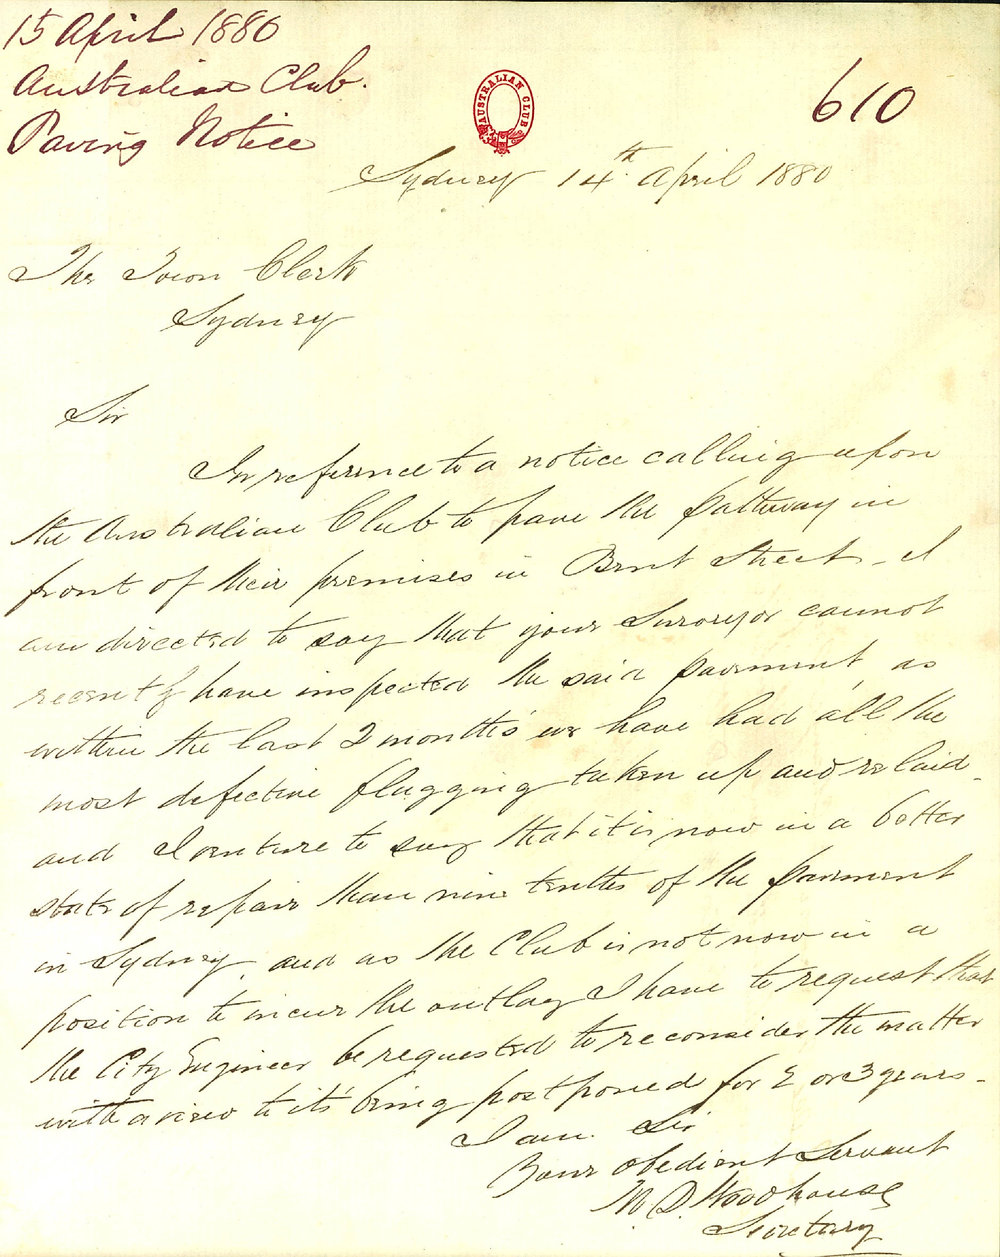 15 April 1880
Australian Club.
Paving Notice
AUSTRALIAN CLUB
610
Sydney 14th April 1880
The Town Clerk
Sydney
Sir
In reference to a notice calling upon
the Australian Club to pave the pathway in
front of their premises in Bent Street - I
am directed to say that your Surveyor cannot
recently have inspected the said pavement, as
within the last 2 months we have had all the
most defective flagging taken up and relaid -
and I venture to say that it is now in a better
state of repair than nine tenths of the pavement
in Sydney, and as the Club is not now in a
position to incur the outlay I have to request that
the City Engineer be requested to reconsider the matter
with a view to it's being postponed for 2 or 3 years -
I am Sir
Your obedient Servant
M. D. Woodhouse
Secretary